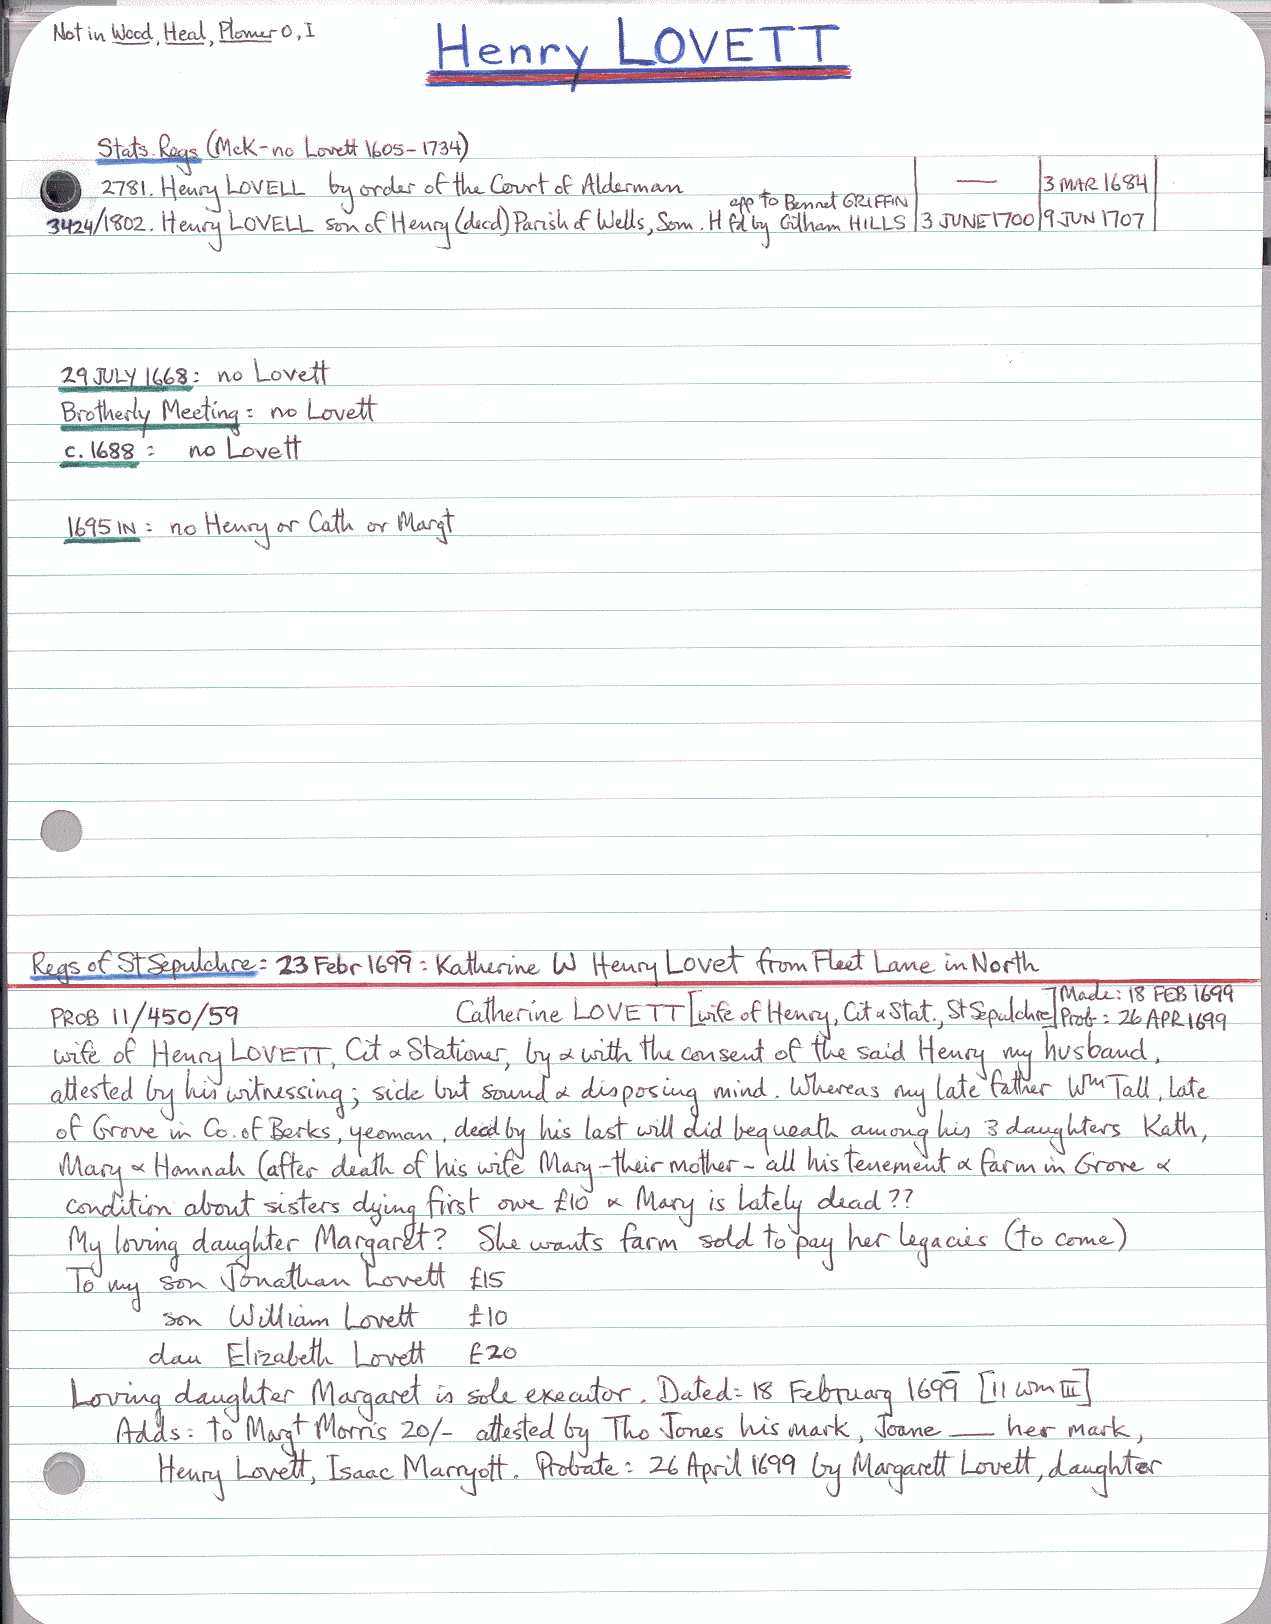 Not in Wood, Heal, Plomer O, I
Henry LOVETT
Stats. Regs (McK - no Lovett 1605 - 1734)
2781. Henry LOVELL by order of the Court of Alderman — 3 MAR 1684
app to Bennet GRIFFIN
3424/1802. Henry LOVELL son of Henry (decd) Parish of Wells, Som. H f'd by Gilham HILLS 3 JUNE 1700 9 JUN 1707
29 JULY 1668: no Lovett
Brotherly Meeting: no Lovett
c. 1688: no Lovett
1695 IN: no Henry or Cath or Margt
Regs of St Sepulchre: 23 Febr 1699: Katherine W Henry Lovet from Fleet Lane in North
PROB 11/450/59 Catherine LOVETT [wife of Henry, Cit & Stat., St Sepulchre] Made: 18 FEB 1699
Prob: 26 APR 1699
wife of Henry LOVETT, Cit & Stationer, by & with the consent of the said Henry my husband,
attested by his witnessing; side but sound & disposing mind. Whereas my late father Wm Tall, late
of Grove in Co. of Berks, yeoman, decd by his last will did bequeath among his 3 daughters Kath,
Mary & Hannah (after death of his wife Mary - their mother - all his tenement & farm in Grove &
condition about sisters dying first owe £10 & Mary is lately dead??
My loving daughter Margaret? She wants farm sold to pay her legacies (to come)
To my son Jonathan Lovett £15
son William Lovett £10
dau Elizabeth Lovett £20
Loving daughter Margaret is sole executor. Dated: 18 February 1699 [11 Wm III]
Adds: to Margt Morris 20/- attested by Tho Jones his mark, Joane — her mark,
Henry Lovett, Isaac Marryott. Probate: 26 April 1699 by Margarett Lovett, daughter